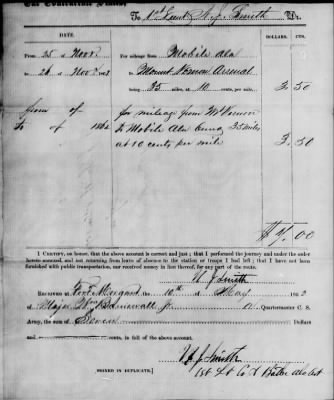 The Confederate States,
To 1st Lieut N. J. Smith Dr.
From 25 of Novr. For mileage from Mobile Ala
To 26 of Novr 1862 Mount Vernon Arsenal
being 35 miles, at 10 cents, per mile. 3.50
from of for mileage from Mt Vernon
To of 1862 to Mobile Ala being 35 miles
at 10 cents per mile 3.50
$7.00
I CERTIFY, on honor, that the above account is correct and just; that I performed the journey and under the order
hereto annexed, and not returning from leave of absence to the station or troops I had left; that I have not been
furnished with public transportation, nor received money in lieu thereof, for any part of the route.
N J Smith
RECEIVED at Fort Morgan the 10th of May 1863
of Major Wm Barnewall Jr. a Quartermaster C. S.
Army, the sum of Seven Dollars
and cents, in full of the above account.
N J Smith
1st Lt Co
[SIGNED IN DUPLICATE.]